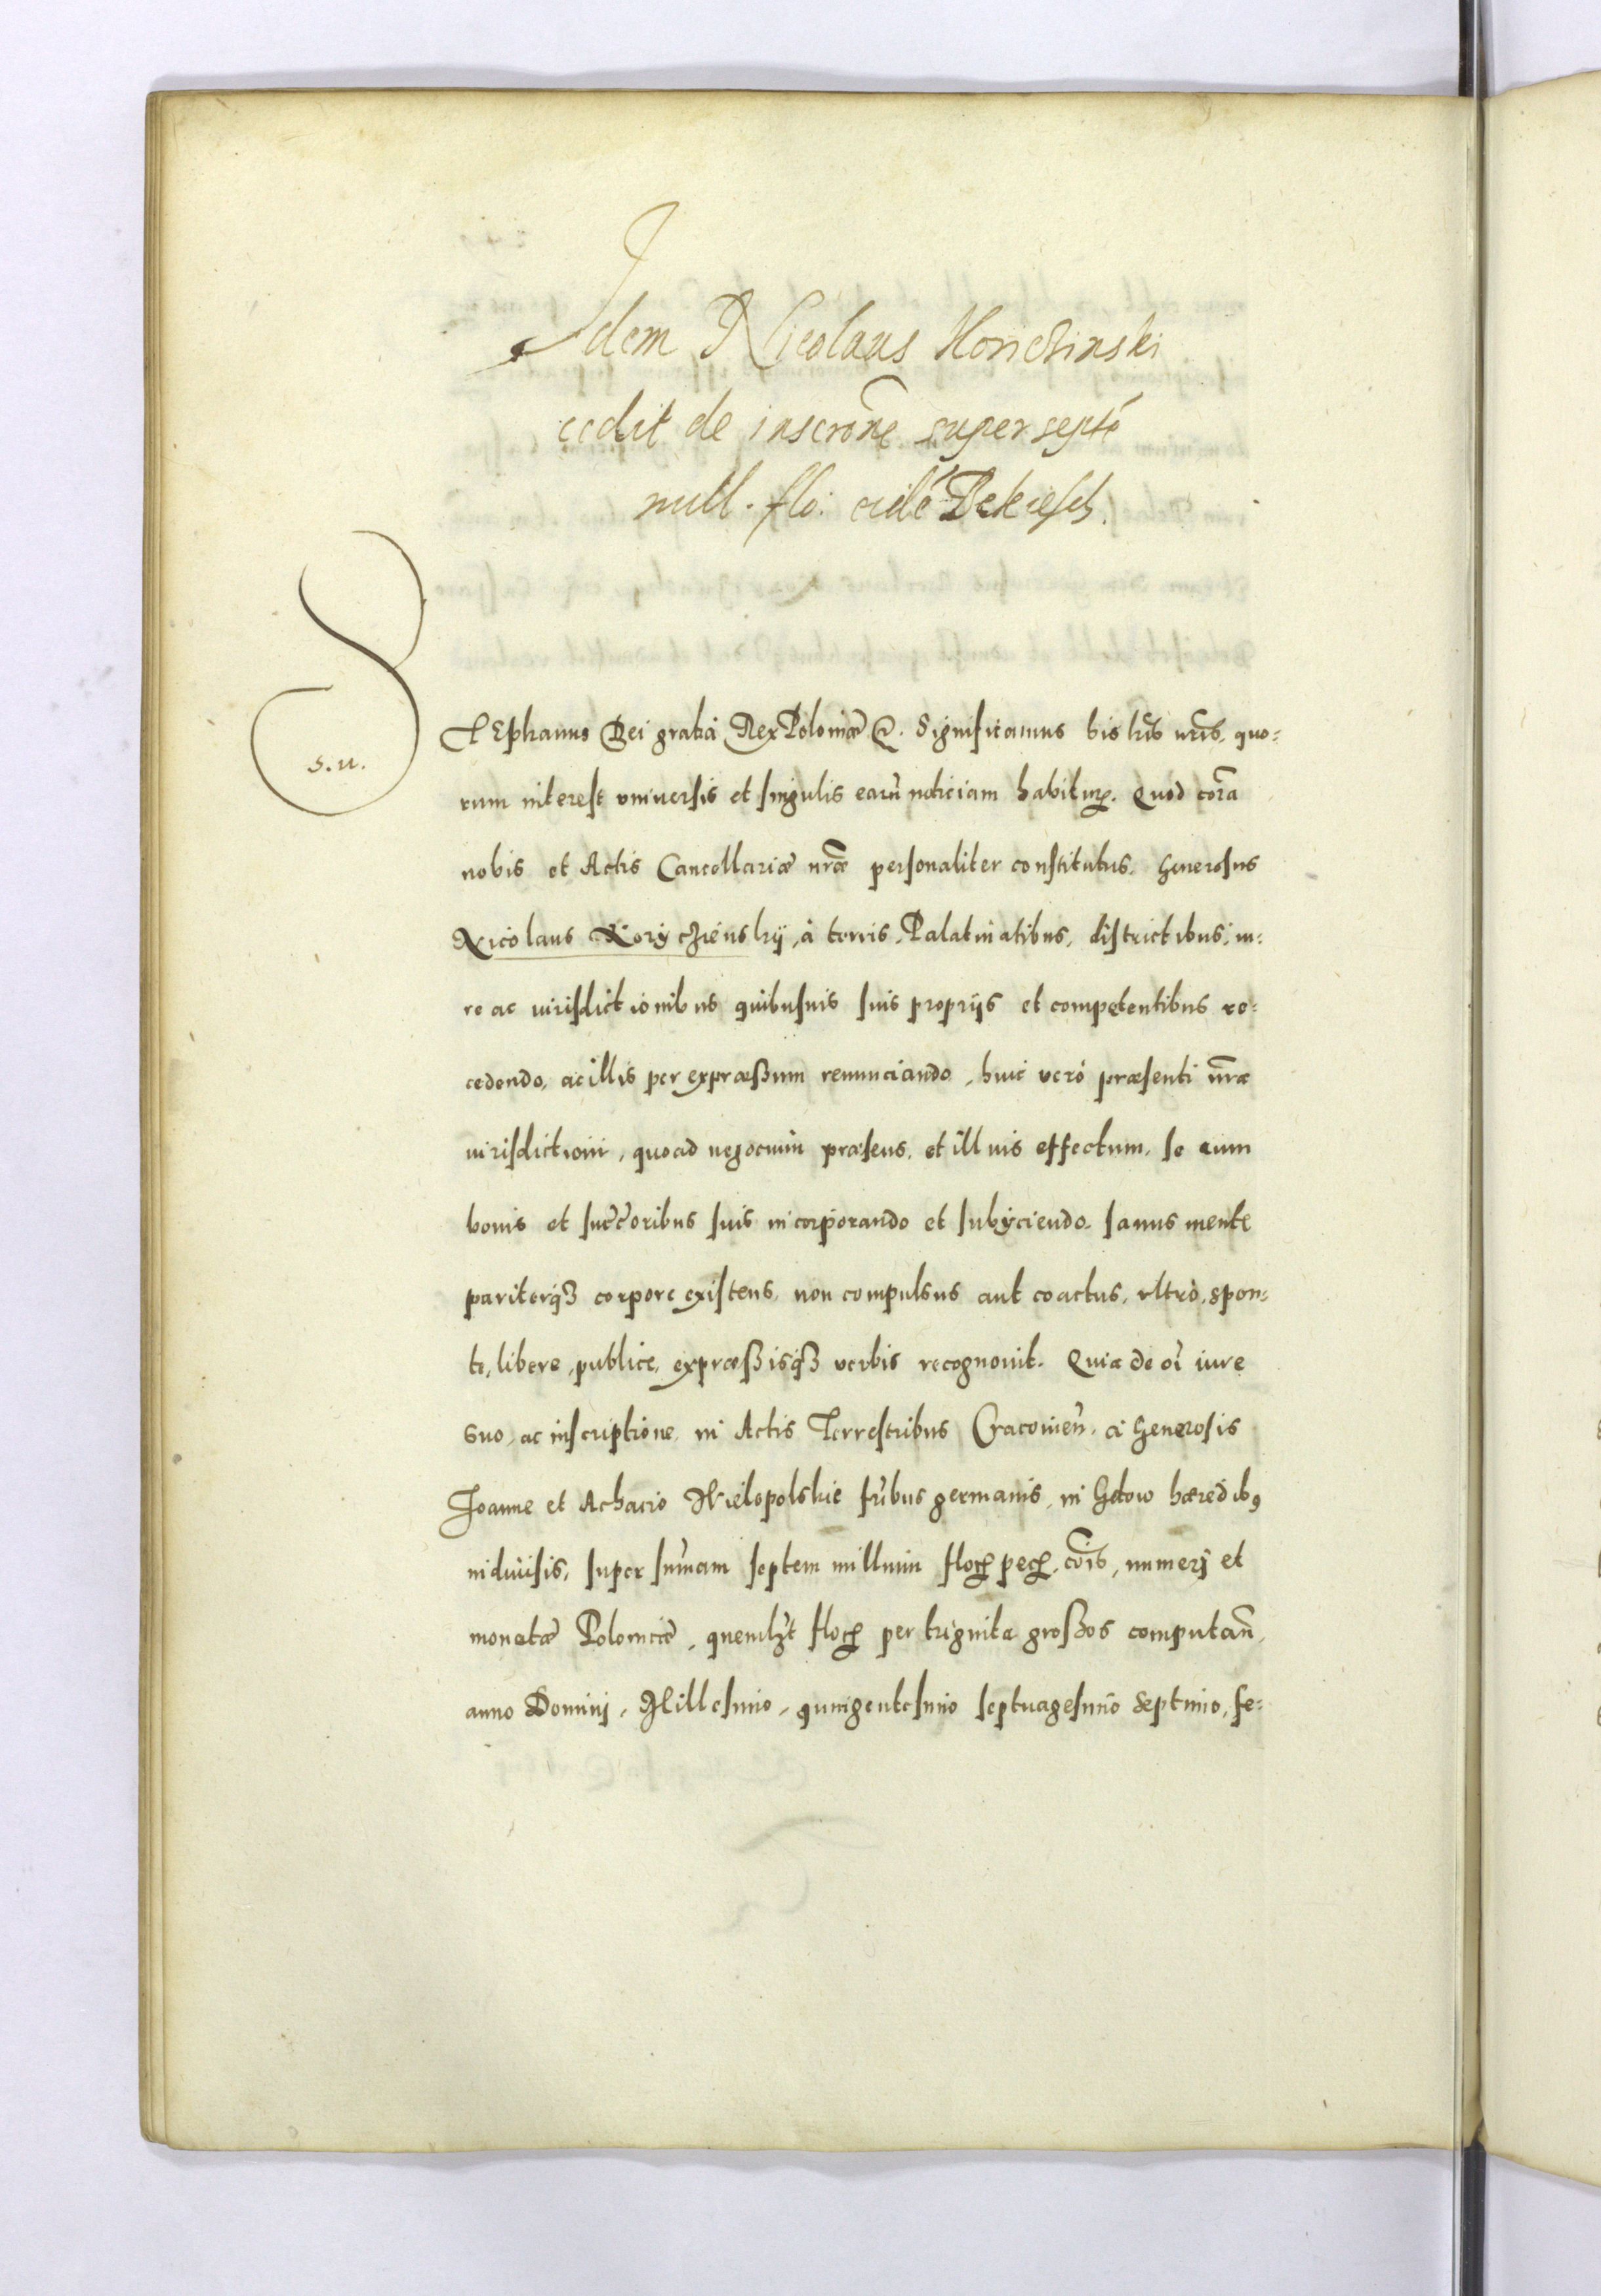 Idem Nicolaus Koriczinski
cedit de inscrõne super septẽ
mill. flo: eidẽ Bekiesch.
STEphanus Dei gratia Rex Poloniæ &. Significamus his lrīs nrīs, quo=
s. u.
rum interest vniuersis et singulis earū noticiam habituŗ. Quòd corã
nobis et Actis Cancellariæ nr̃æ personaliter constitutus. Generosus
Nicolaus Korÿcziénskÿ, à terris, Palatinatibus, districtibus, iu=
re ac iurisdictionibus quibusuis suis proprijs et competentibus re=
cedendo, ac illis per expræßum renunciando, huic verò præsenti nr̃æ
iurisdictioni, quoad negocium præsens, et illius effectum, se cum
bonis et succ̃oribus suis incorporando et subÿciendo. sanus mente
pariterq̃ȝ corpore existens, non compulsus aut coactus, vltrò, spon=
te, libere, publice, expræßisq̃ȝ verbis recognouit. Quia de oĩ iure
suo, ac inscriptione in Actis Terrestribus Cracouieñ. a Generosis
Joanne et Achacio Wielopolskie fr̃ibus germanis, in Gdow hæredibꝰ
indiuisis, super sum̃am septem millium floꝝ pecꝝ. cõis, numerj et
monetæ Polonicæ, quemlȝt floꝝ per triginta großos computañ,
anno Dominj, Millesimo, quingentesimo septuagesimo septimo, fe=